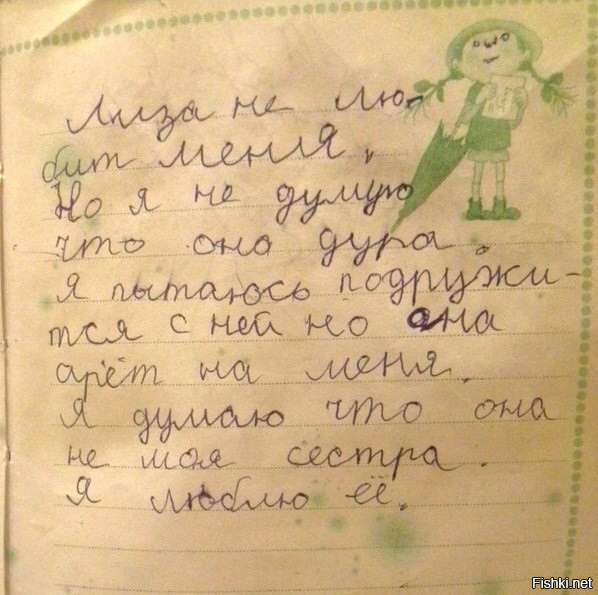 Лиза не лю-
бит меня.
Но я не думую
что она дура.
Я пытаюсь подружи-
тся с ней но она
арёт на меня.
Я думаю что она
не моя сестра.
Я люблю её.
Fishki.net